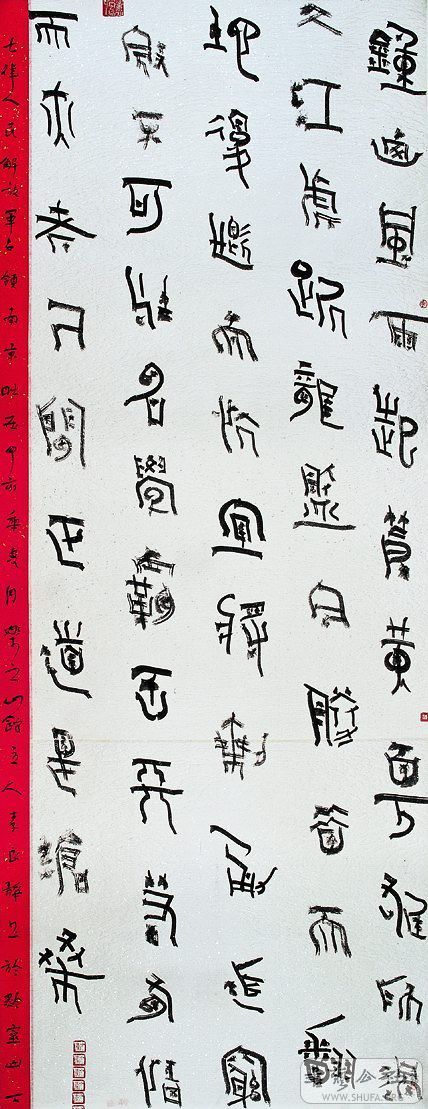 鐘山風雨起蒼黃百萬雄師過
大江虎踞龍盤今勝昔天翻
地覆慨而慷宜將剩勇追窮
寇不可沽名學霸王天若有情
天亦老人間正道是滄桑
七律人民解放軍占領南京 年夏月 山館主人
WWW.SHUFA.ORG